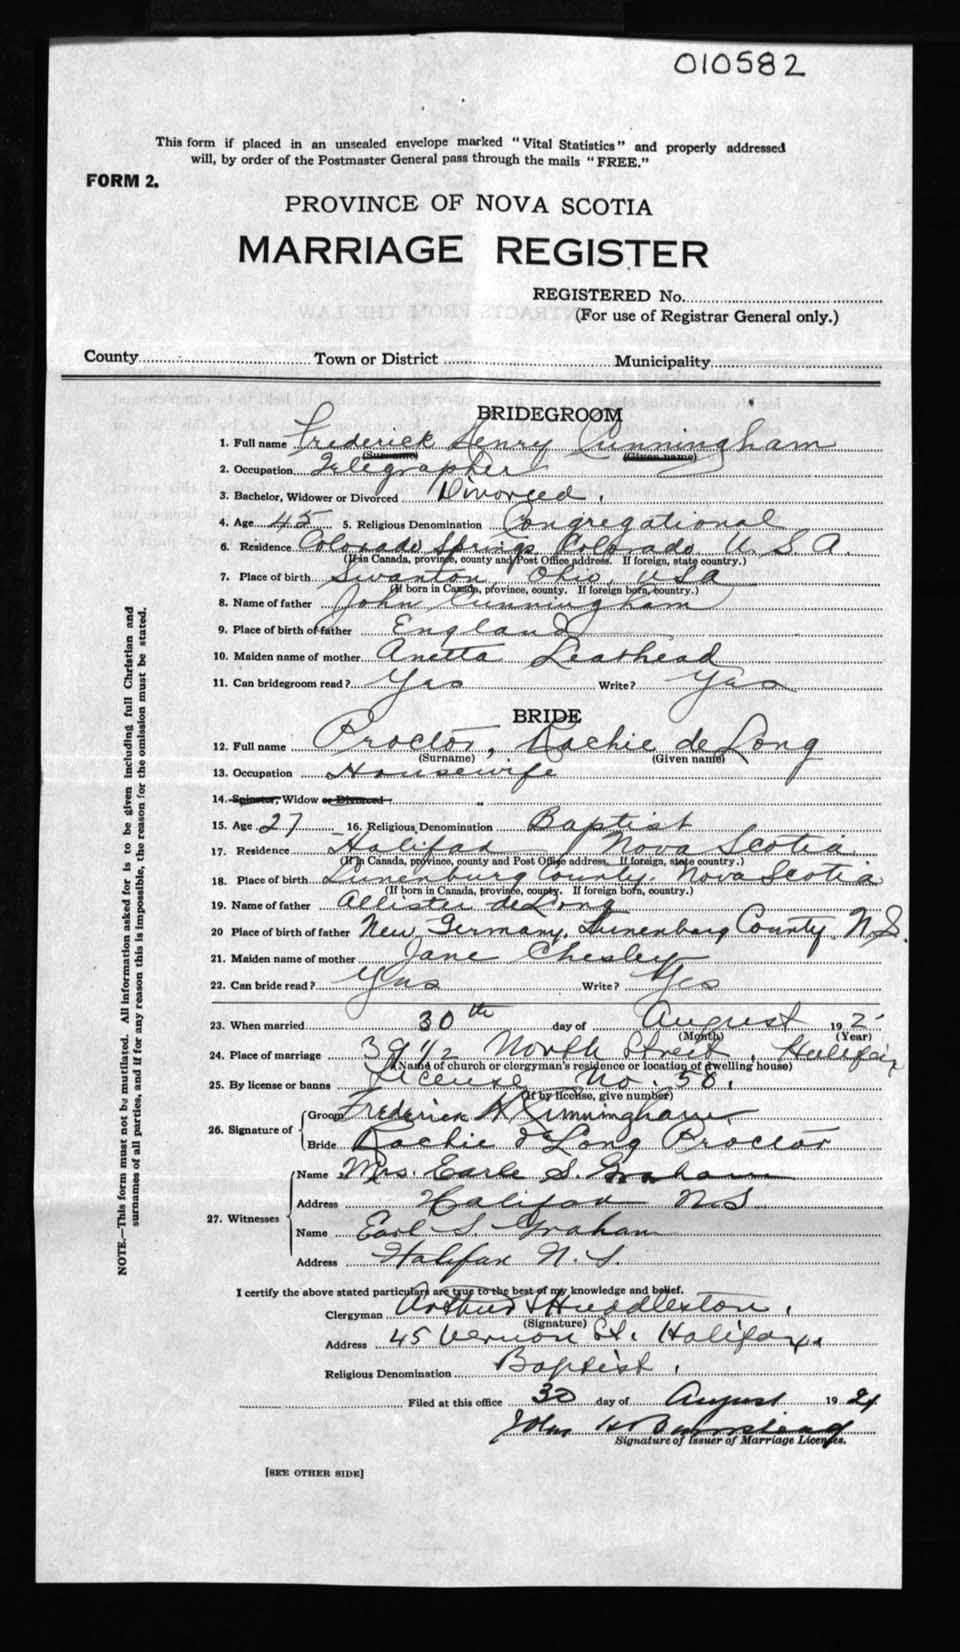 010582
This form if placed in an unsealed envelope marked "Vital Statistics" and properly addressed
will, by order of the Postmaster General pass through the mails "FREE."
FORM 2.
PROVINCE OF NOVA SCOTIA
MARRIAGE REGISTER
REGISTERED No.
(For use of Registrar General only.)
County Town or District Municipality
BRIDEGROOM
1. Full name Frederick Henry Cunningham
(Surname) (Given name)
2. Occupation Telegrapher
3. Bachelor, Widower or Divorced Divorced.
4. Age 45 5. Religious Denomination Congregational
6. Residence Colorado Springs Colorado U.S.A.
(If in Canada, province, county and Post Office address. If foreign, state country.)
7. Place of birth Swanton, Ohio, USA
(If born in Canada, province, county. If foreign born, country.)
8. Name of father John Cunningham
9. Place of birth of father England
10. Maiden name of mother Anetta Leathead
11. Can bridegroom read? Yes Write? Yes
BRIDE
12. Full name Proctor, Rachie deLong
(Surname) (Given name)
13. Occupation Housewife
14. Spinster, Widow or Divorced
15. Age 27 16. Religious Denomination Baptist
17. Residence Halifax Nova Scotia
(If in Canada, province, county and Post Office address. If foreign, state country.)
18. Place of birth Lunenburg County. Nova Scotia
(If born in Canada, province, county. If foreign born, country.)
19. Name of father Allister deLong
20 Place of birth of father New Germany, Lunenburg County N.S.
21. Maiden name of mother Jane Chesley
22. Can bride read? Yes Write? Yes
23. When married 30th day of August 192
(Month) (Year)
24. Place of marriage 39 1/2 North Street, Halifax
(Name of church or clergyman's residence or location of dwelling house)
25. By license or banns License No. 58.
(If by license, give number)
26. Signature of Groom Frederick H Cunningham
Bride Rachie deLong Proctor
27. Witnesses Name Mrs. Earle S. Graham
Address Halifax N.S
Name Earl S. Graham
Address Halifax N.S.
I certify the above stated particulars are true to the best of my knowledge and belief.
Clergyman Arthur Huddleston.
(Signature)
Address 45 Vernon St. Halifax.
Religious Denomination Baptist.
Filed at this office 30 day of August 1924
John H Barnstead
Signature of Issuer of Marriage Licenses.
[SEE OTHER SIDE]
NOTE.—This form must not be mutilated. All information asked for is to be given including full Christian and
surnames of all parties, and if for any reason this is impossible, the reason for the omission must be stated.